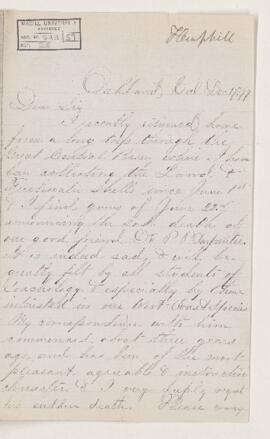 McGILL UNIVERSITY
ARCHIVES
ACC. NO.
REF.
Hemphill
Oakland, Cal Dec 17th 77
Dear Sir
I recently returned home
from a long trip through the
Great Central Basin where I have
been collecting the Land &
Freshwater Shells since June 1st
& I find yours of June 22d
announcing the sad death of
our good friend Dr P. P. Carpenter.
it is indeed sad, & will be
greatly felt by all students of
Conchology & especially by those
interested in our West Coast Species
My correspondence with him
commenced about three years
ago, and has been of the most
pleasant, agreeable & instructive
character & I very deeply regret
his sudden death. Please